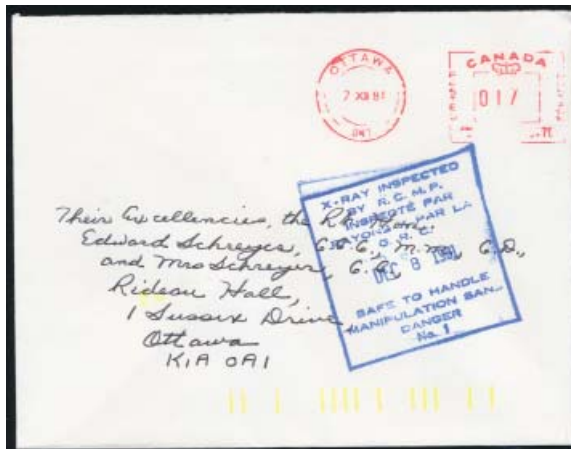 OTTAWA
7 XII 81
ONT
CANADA
017
X-RAY INSPECTED
BY R.C.M.P.
INSPECTÉ PAR
RAYONS X PAR LA
G.R.C.
DEC 8 1981
SAFE TO HANDLE
MANIPULATION SAN..
DANGER
No. 1
Their Excellencies, the Rt. Hon.
Edward Schreyer, C.C., C.M.M., C.D.,
and Mrs Schreyer, C.C.,
Rideau Hall,
1 Sussex Drive,
Ottawa
K1A 0A1